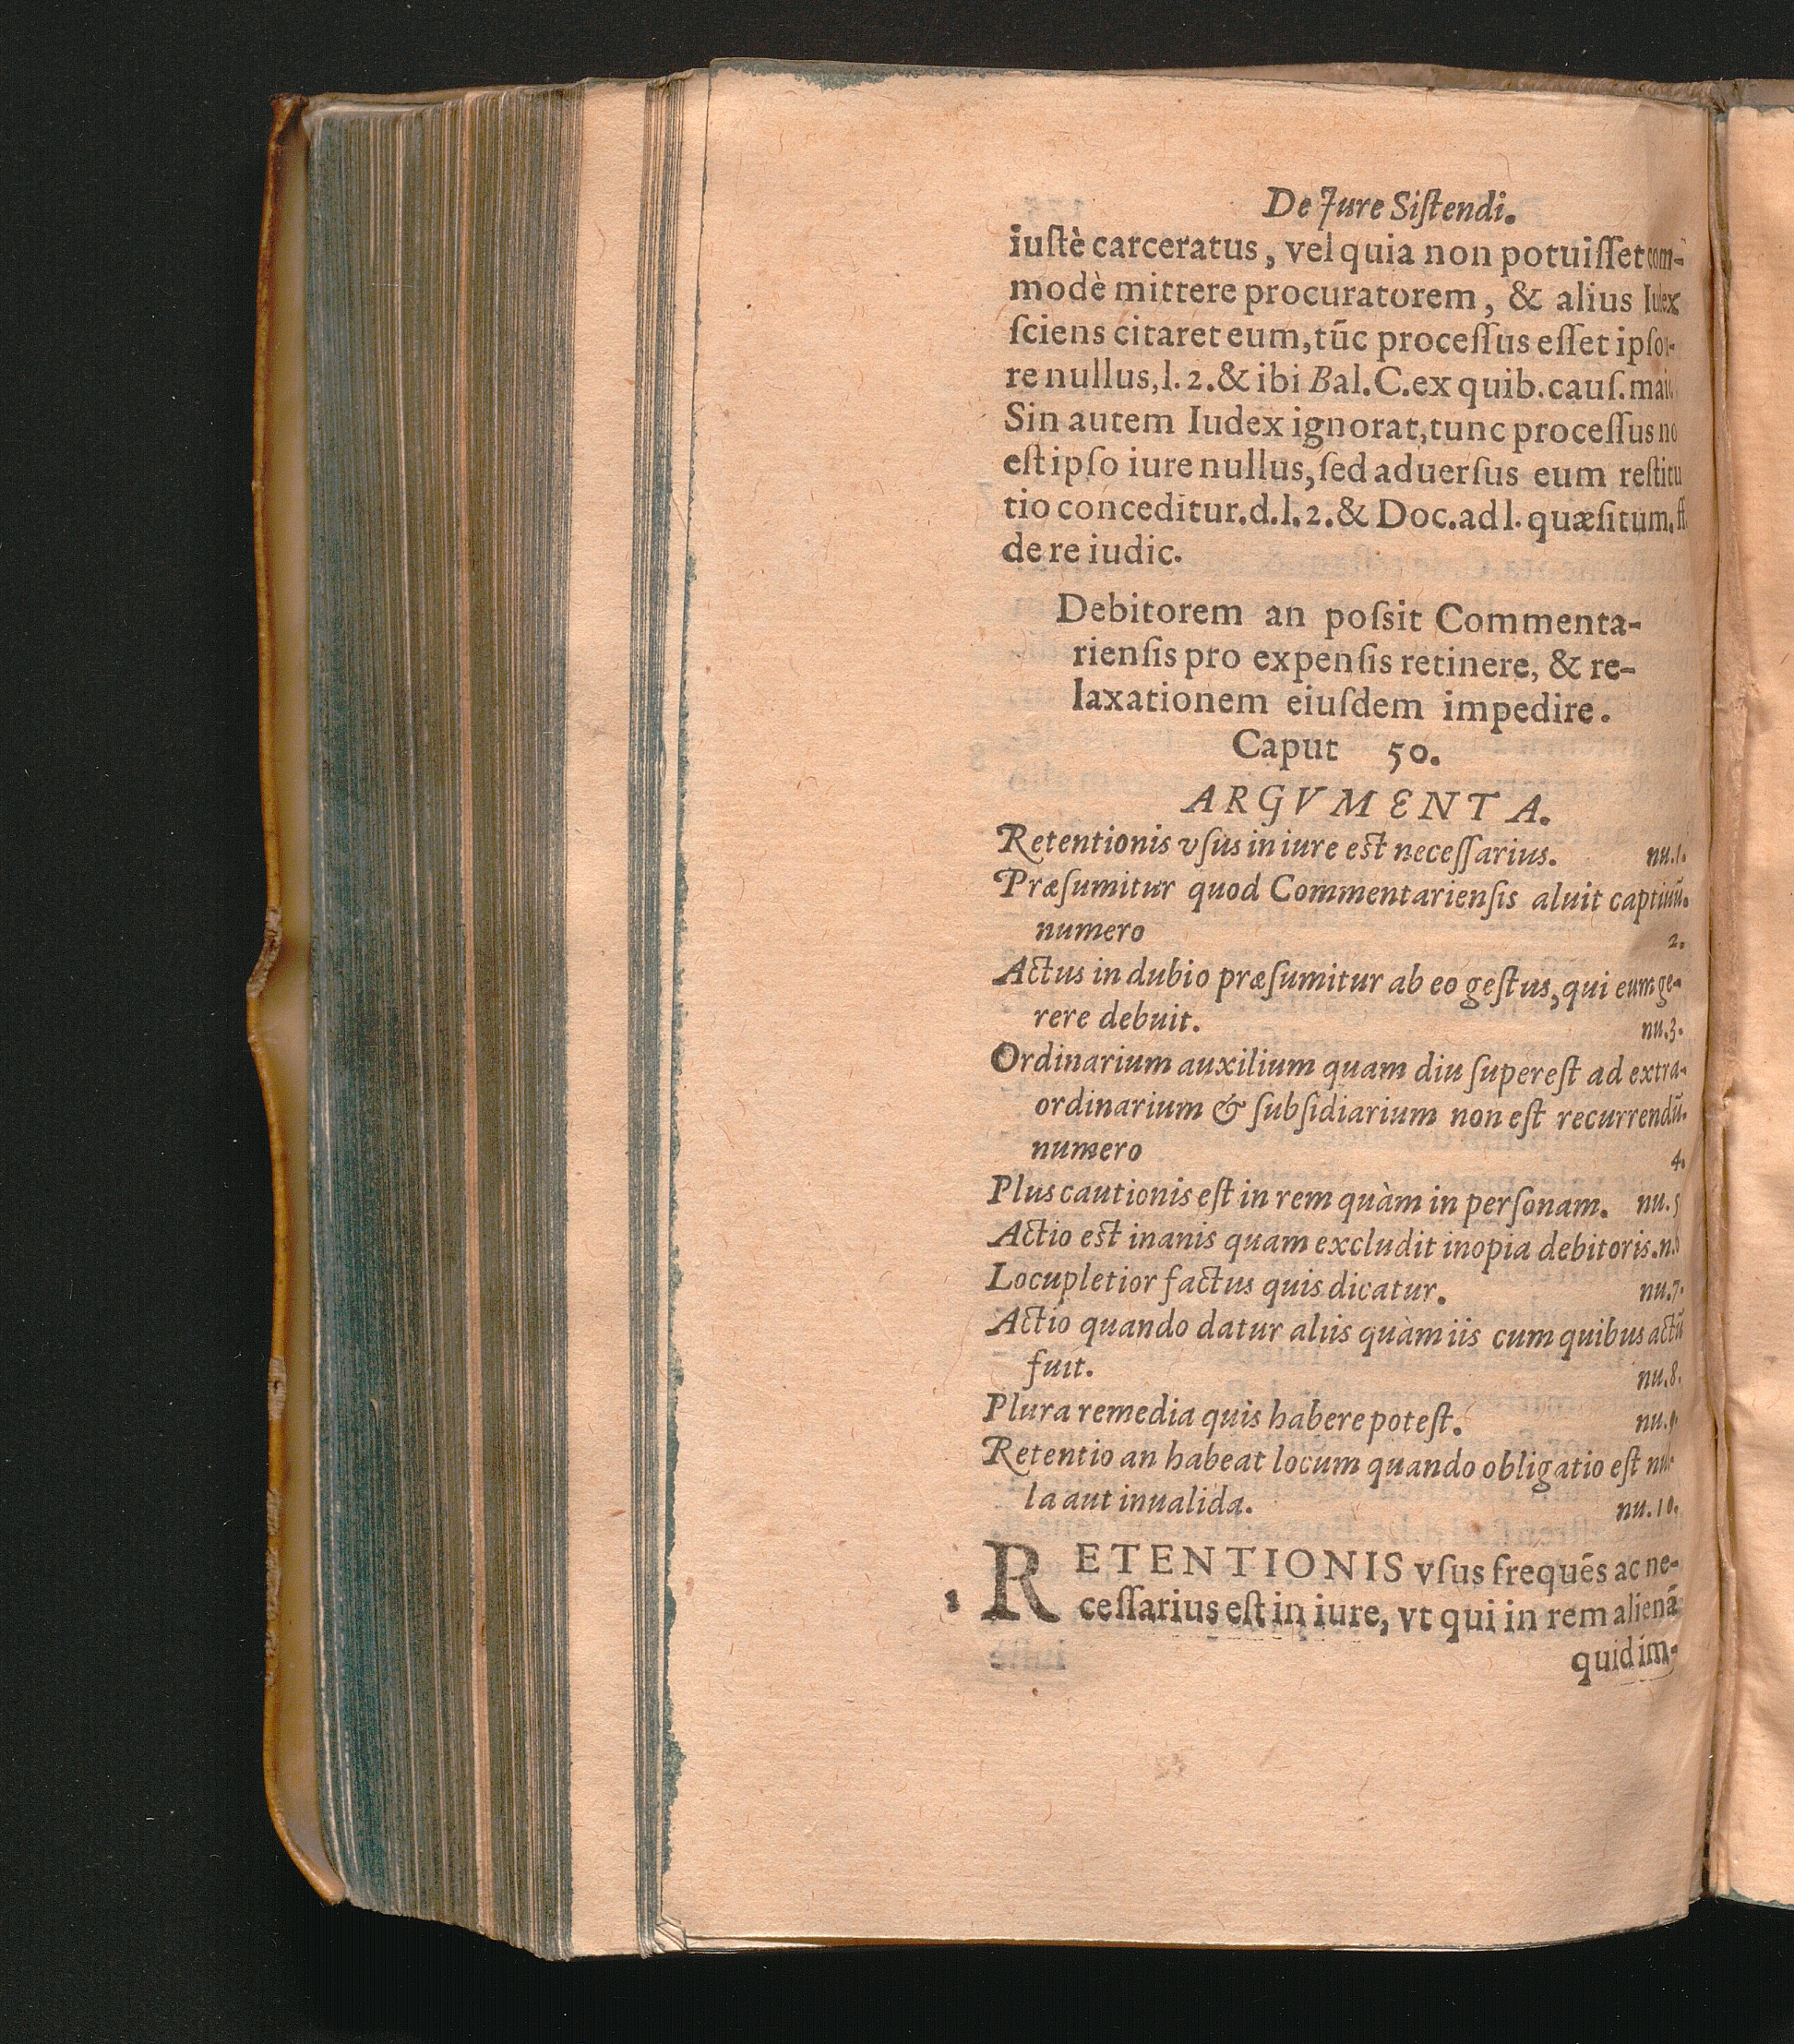 De Jure Siſtendi.
iuſtè carceratus, vel quia non potuiſſet com-
modè mittere procuratorem, & alius Iudex
ſciens citaret eum, tūc proceſſus eſſet ipſo iu-
re nullus, l. 2. & ibi Bal. C. ex quib. cauſ. maio.
Sin autem Iudex ignorat, tunc proceſſus nō
eſt ipſo iure nullus, ſed aduerſus eum reſtitu
tio conceditur. d. l. 2. & Doc. ad l. quæſitum. ff.
de re iudic.
Debitorem an poſsit Commenta-
rienſis pro expenſis retinere, & re-
laxationem eiuſdem impedire.
Caput 50.
ARGVMENTA.
Retentionis vſus in iure est neceſſarius. nu. 1.
Præſumitur quod Commentarienſis aluit captiuū.
numero 2.
Actus in dubio præſumitur ab eo geſtus, qui eum ge-
rere debuit. nu. 3.
Ordinarium auxilium quam diu ſupereſt ad extra-
ordinarium & ſubſidiarium non eſt recurrendū.
numero 4.
Plus cautionis eſt in rem quàm in perſonam. nu. 5
Actio est inanis quam excludit inopia debitoris. n. 6
Locupletior factus quis dicatur. nu. 7.
Actio quando datur aliis quàm iis cum quibus actū
fuit. nu. 8.
Plura remedia quis habere poteſt. nu. 9.
Retentio an habeat locum quando obligatio eſt nul-
la aut inualida. nu. 10.
1 RETENTIONIS vſus frequēs ac ne-
ceſſarius eſt in iure, vt qui in rem alienā
quid im-